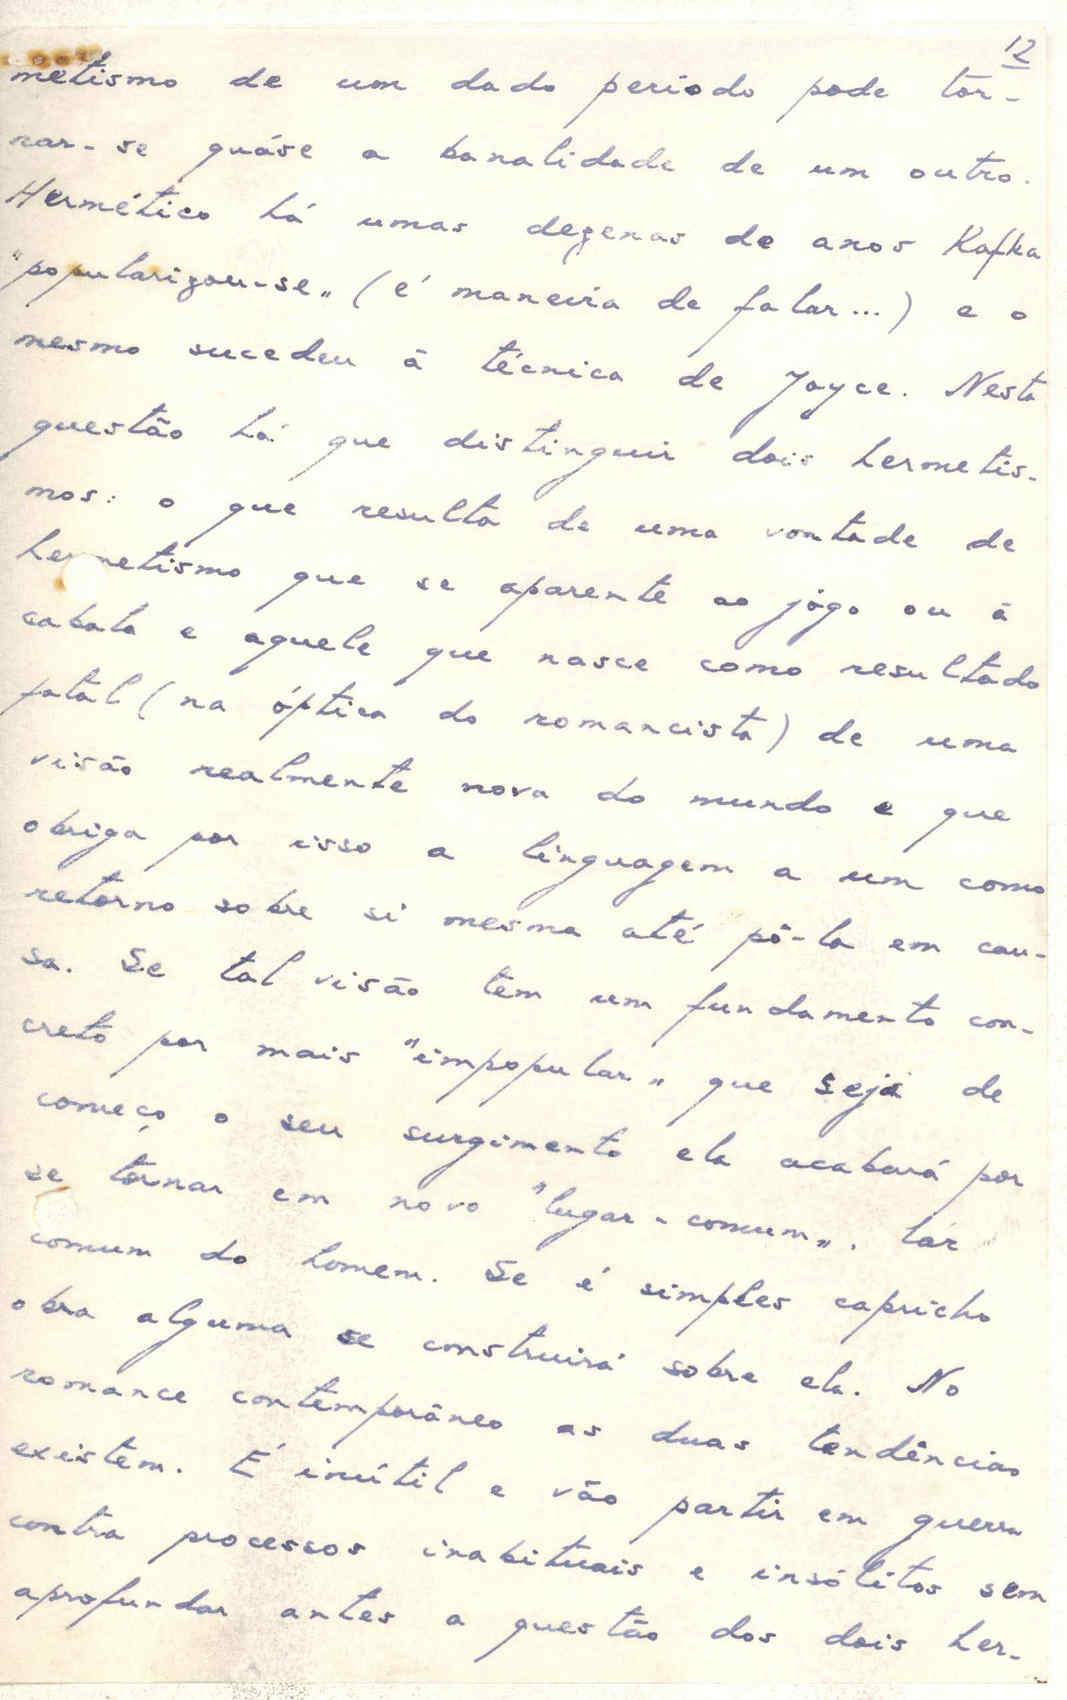 12
metismo de um dado período pode tor-
nar-se quáse a banalidade de um outro.
Hermético há umas dezenas de anos Kafka
"popularizou-se" (é maneira de falar...) e o
mesmo sucedeu à técnica de Joyce. Nesta
questão há que distinguir dois hermetis-
mos: o que resulta de uma vontade de
hermetismo que se aparente ao jôgo ou à
cabala e aquele que nasce como resultado
fatal (na óptica do romancista) de uma
visão realmente nova do mundo e que
obriga por isso a linguagem a um como
retorno sobre si mesma até pô-la em cau-
sa. Se tal visão tem um fundamento con-
creto por mais "impopular" que seja de
começo o seu surgimento ela acabará por
se tornar em novo "lugar-comum", lar
comum do homem. Se é simples capricho
obra alguma se construirá sobre ela. No
romance contemporâneo as duas tendências
existem. É inútil e vão partir em guerra
contra processos inabituais e insólitos sem
aprofundar antes a questão dos dois her-